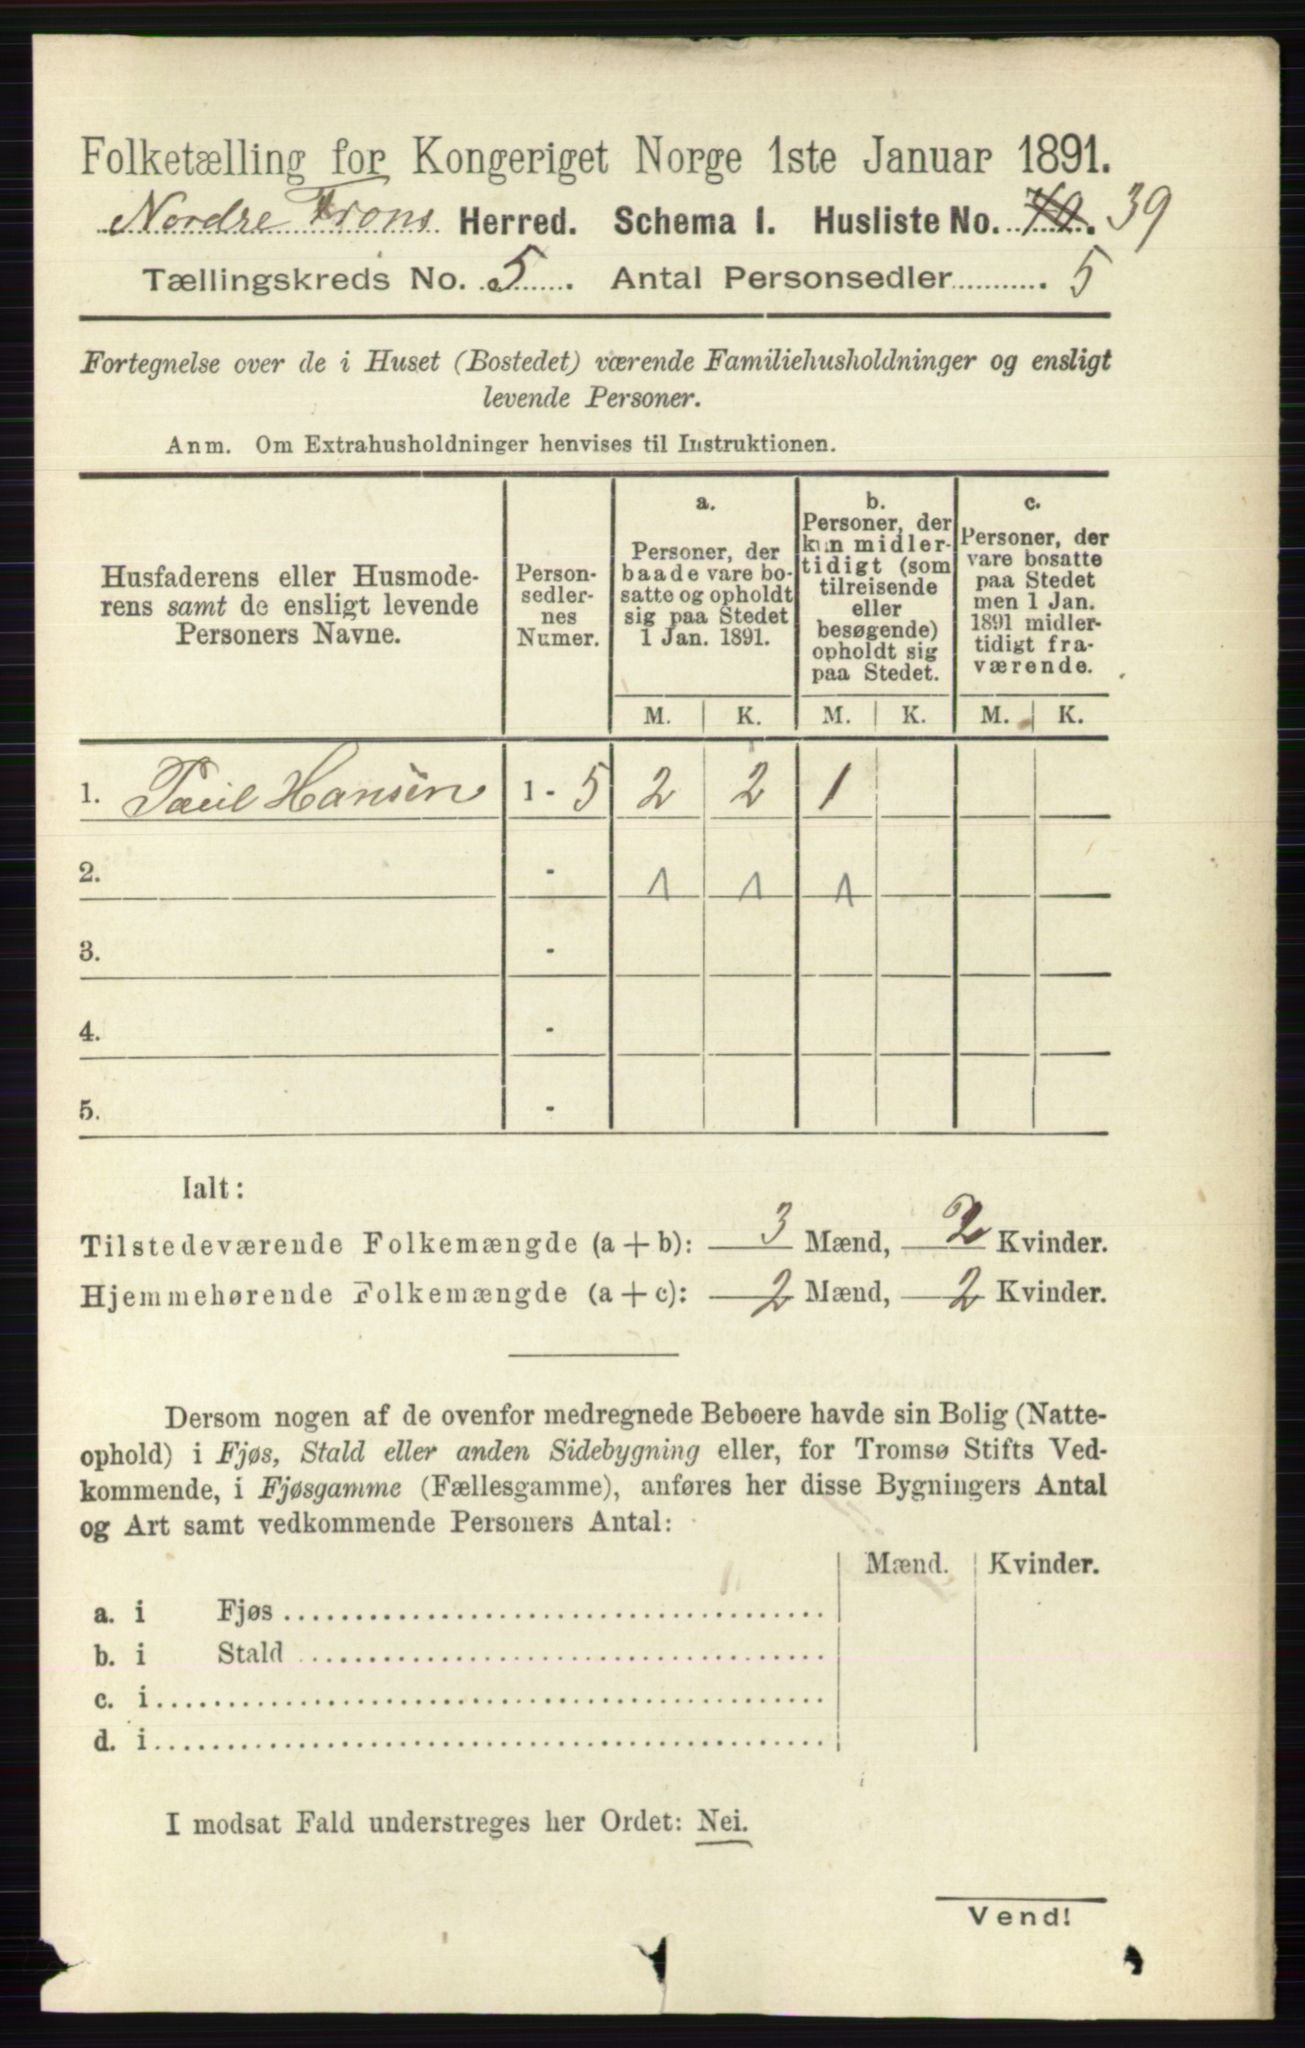 Folketælling for Kongeriget Norge 1ste Januar 1891.
Nordre Frons Herred. Schema I. Husliste No. 40. 39
Tællingskreds No. 5. Antal Personsedler........... 5
Fortegnelse over de i Huset (Bostedet) værende Familiehusholdninger og ensligt
levende Personer.
Anm. Om Extrahusholdninger henvises til Instruktionen.
Husfaderens eller Husmode-
rens samt de ensligt levende
Personers Navne.
Person-
sedler-
nes
Numer.
a.
Personer, der
baade vare bo-
satte og opholdt
sig paa Stedet
1 Jan. 1891.
b.
Personer, der
kun midler-
tidigt (som
tilreisende
eller
besøgende)
opholdt sig
paa Stedet.
c.
Personer, der
vare bosatte
paa Stedet
men 1 Jan.
1891 midler-
tidigt fra-
værende.
M. K. M. K. M. K.
1. Paul Hansen 1 - 5 2 2 1
2. - 1 1 1
3. -
4. -
5. -
Ialt:
Tilstedeværende Folkemængde (a + b): 3 Mænd, 2 Kvinder.
Hjemmehørende Folkemængde (a + c): 2 Mænd, 2 Kvinder.
Dersom nogen af de ovenfor medregnede Beboere havde sin Bolig (Natte-
ophold) i Fjøs, Stald eller anden Sidebygning eller, for Tromsø Stifts Ved-
kommende, i Fjøsgamme (Fællesgamme), anføres her disse Bygningers Antal
og Art samt vedkommende Personers Antal:
Mænd. Kvinder.
a. i Fjøs
b. i Stald
c. i
d. i
I modsat Fald understreges her Ordet: Nei.
Vend!